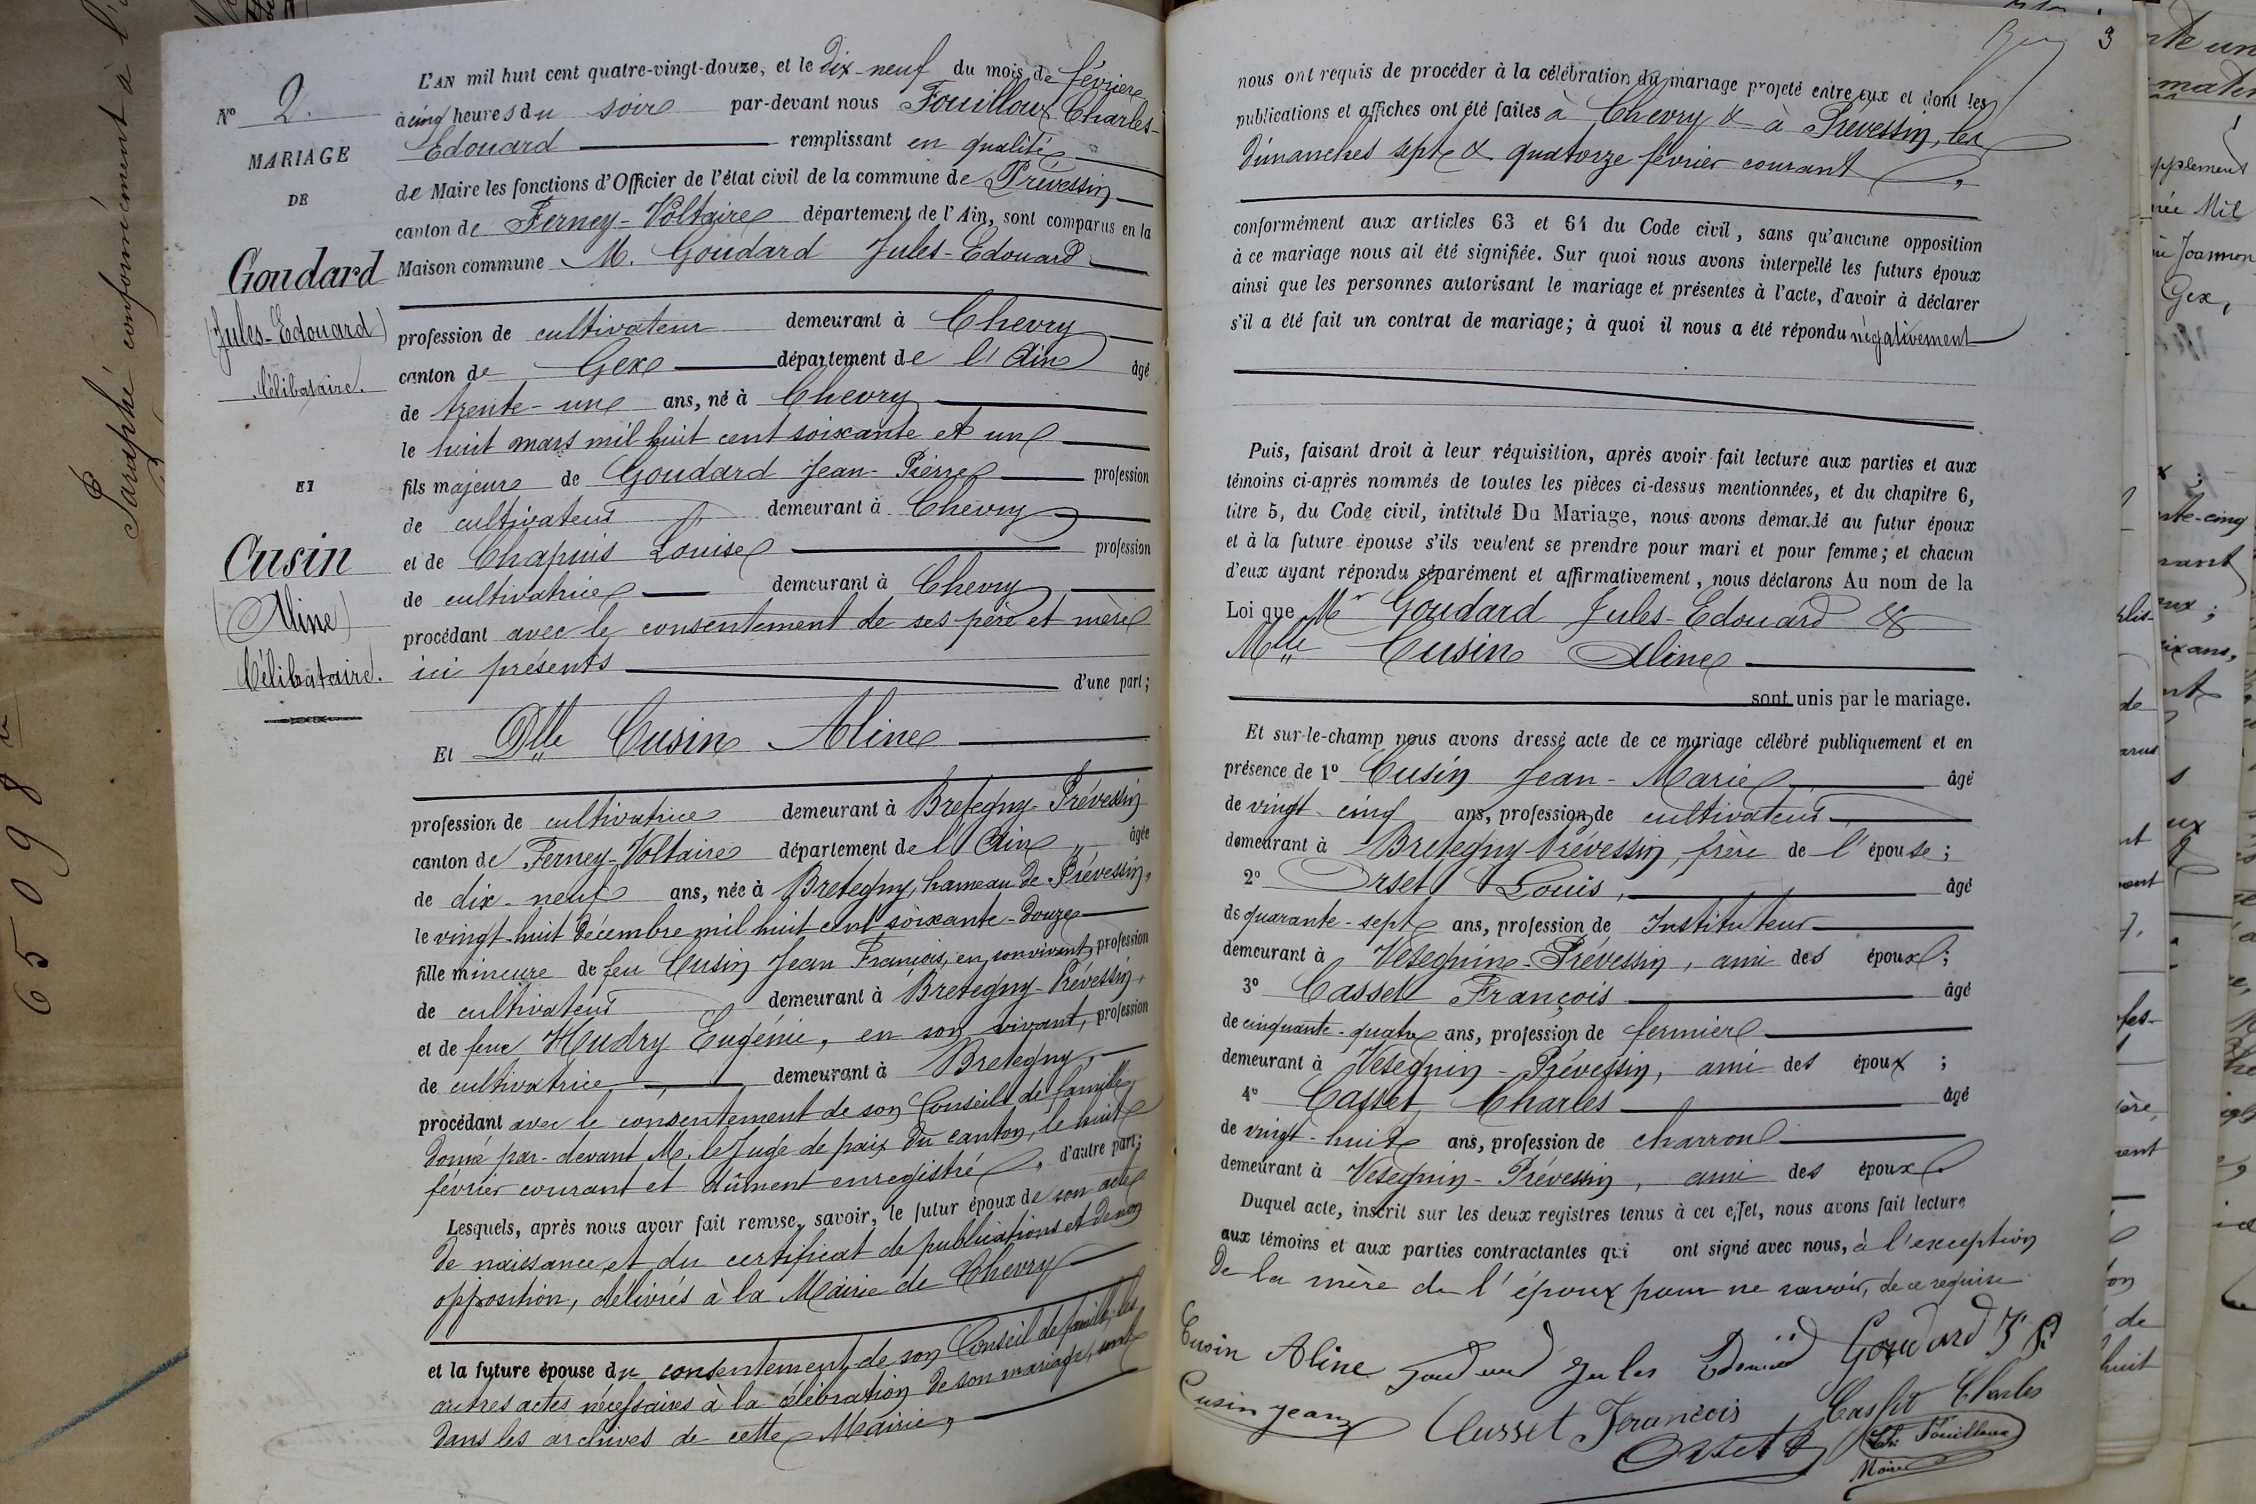 Paraphé conformément à l'
65098
N° 2.
MARIAGE
DE
Goudard
(Jules-Edouard)
Célibataire.
ET
Cusin
(Aline)
Célibataire.
L'AN mil huit cent quatre-vingt-douze, et le dix-neuf du mois de février
à cinq heures du soir par-devant nous Fouilloux Charles-
Edouard remplissant en qualité
de Maire les fonctions d'Officier de l'état civil de la commune de Prévessin
canton de Ferney-Voltaire département de l'Ain, sont comparus en la
Maison commune M. Goudard Jules-Edouard
profession de cultivateur demeurant à Chevry
canton de Gex département de l'Ain âgé
de trente-un ans, né à Chevry
le huit mars mil huit cent soixante et un
fils majeur de Goudard Jean-Pierre profession
de cultivateur demeurant à Chevry
et de Chapuis Louise profession
de cultivatrice demeurant à Chevry
procédant avec le consentement de ses père et mère
ici présents d'une part;
Et Dlle Cusin Aline
profession de cultivatrice demeurant à Bretegny-Prévessin
canton de Ferney-Voltaire département de l'Ain âgée
de dix-neuf ans, née à Bretegny, hameau de Prévessin,
le vingt-huit décembre mil huit cent soixante-douze
fille mineure de feu Cusin Jean François, en son vivant, profession
de cultivateur demeurant à Bretegny-Prévessin,
et de feue Hudry Eugénie, en son vivant, profession
de cultivatrice, demeurant à Bretegny,
procédant avec le consentement de son Conseil de famille
donné par-devant M. le Juge de paix du canton, le huit
février courant et dûment enregistré, d'autre part;
Lesquels, après nous avoir fait remise, savoir, le futur époux de son acte
de naissance, et du certificat de publications et de non
opposition, délivrés à la Mairie de Chevry
et la future épouse du consentement de son Conseil de famille, les
autres actes nécessaires à la célébration de son mariage, sont
dans les archives de cette Mairie,
3
nous ont requis de procéder à la célébration du mariage projeté entre eux et dont les
publications et affiches ont été faites à Chevry & à Prévessin, les
dimanches sept & quatorze février courant,
conformément aux articles 63 et 64 du Code civil, sans qu'aucune opposition
à ce mariage nous ait été signifiée. Sur quoi nous avons interpellé les futurs époux
ainsi que les personnes autorisant le mariage et présentes à l'acte, d'avoir à déclarer
s'il a été fait un contrat de mariage; à quoi il nous a été répondu négativement
Puis, faisant droit à leur réquisition, après avoir fait lecture aux parties et aux
témoins ci-après nommés de toutes les pièces ci-dessus mentionnées, et du chapitre 6,
titre 5, du Code civil, intitulé Du Mariage, nous avons demandé au futur époux
et à la future épouse s'ils veulent se prendre pour mari et pour femme; et chacun
d'eux ayant répondu séparément et affirmativement, nous déclarons Au nom de la
Loi que Mr Goudard Jules-Edouard &
Mlle Cusin Aline
sont unis par le mariage.
Et sur-le-champ nous avons dressé acte de ce mariage célébré publiquement et en
présence de 1° Cusin Jean-Marie âgé
de vingt-cinq ans, profession de cultivateur
demeurant à Bretegny Prévessin, frère de l'épouse;
2° Orset Louis, âgé
de quarante-sept ans, profession de Instituteur
demeurant à Vesegnin-Prévessin, ami des époux;
3° Casset François âgé
de cinquante-quatre ans, profession de fermier
demeurant à Vesegnin-Prévessin, ami des époux;
4° Casset Charles âgé
de vingt-huit ans, profession de charron
demeurant à Vesegnin-Prévessin, ami des époux.
Duquel acte, inscrit sur les deux registres tenus à cet effet, nous avons fait lecture
aux témoins et aux parties contractantes qui ont signé avec nous, à l'exception
de la mère de l'époux pour ne savoir, de ce requise
Cusin Aline Goudard Jules Edouard Goudard J P
Cusin jean Cusset François Casset Charles
Orset L Ch. Fouilloux
Maire